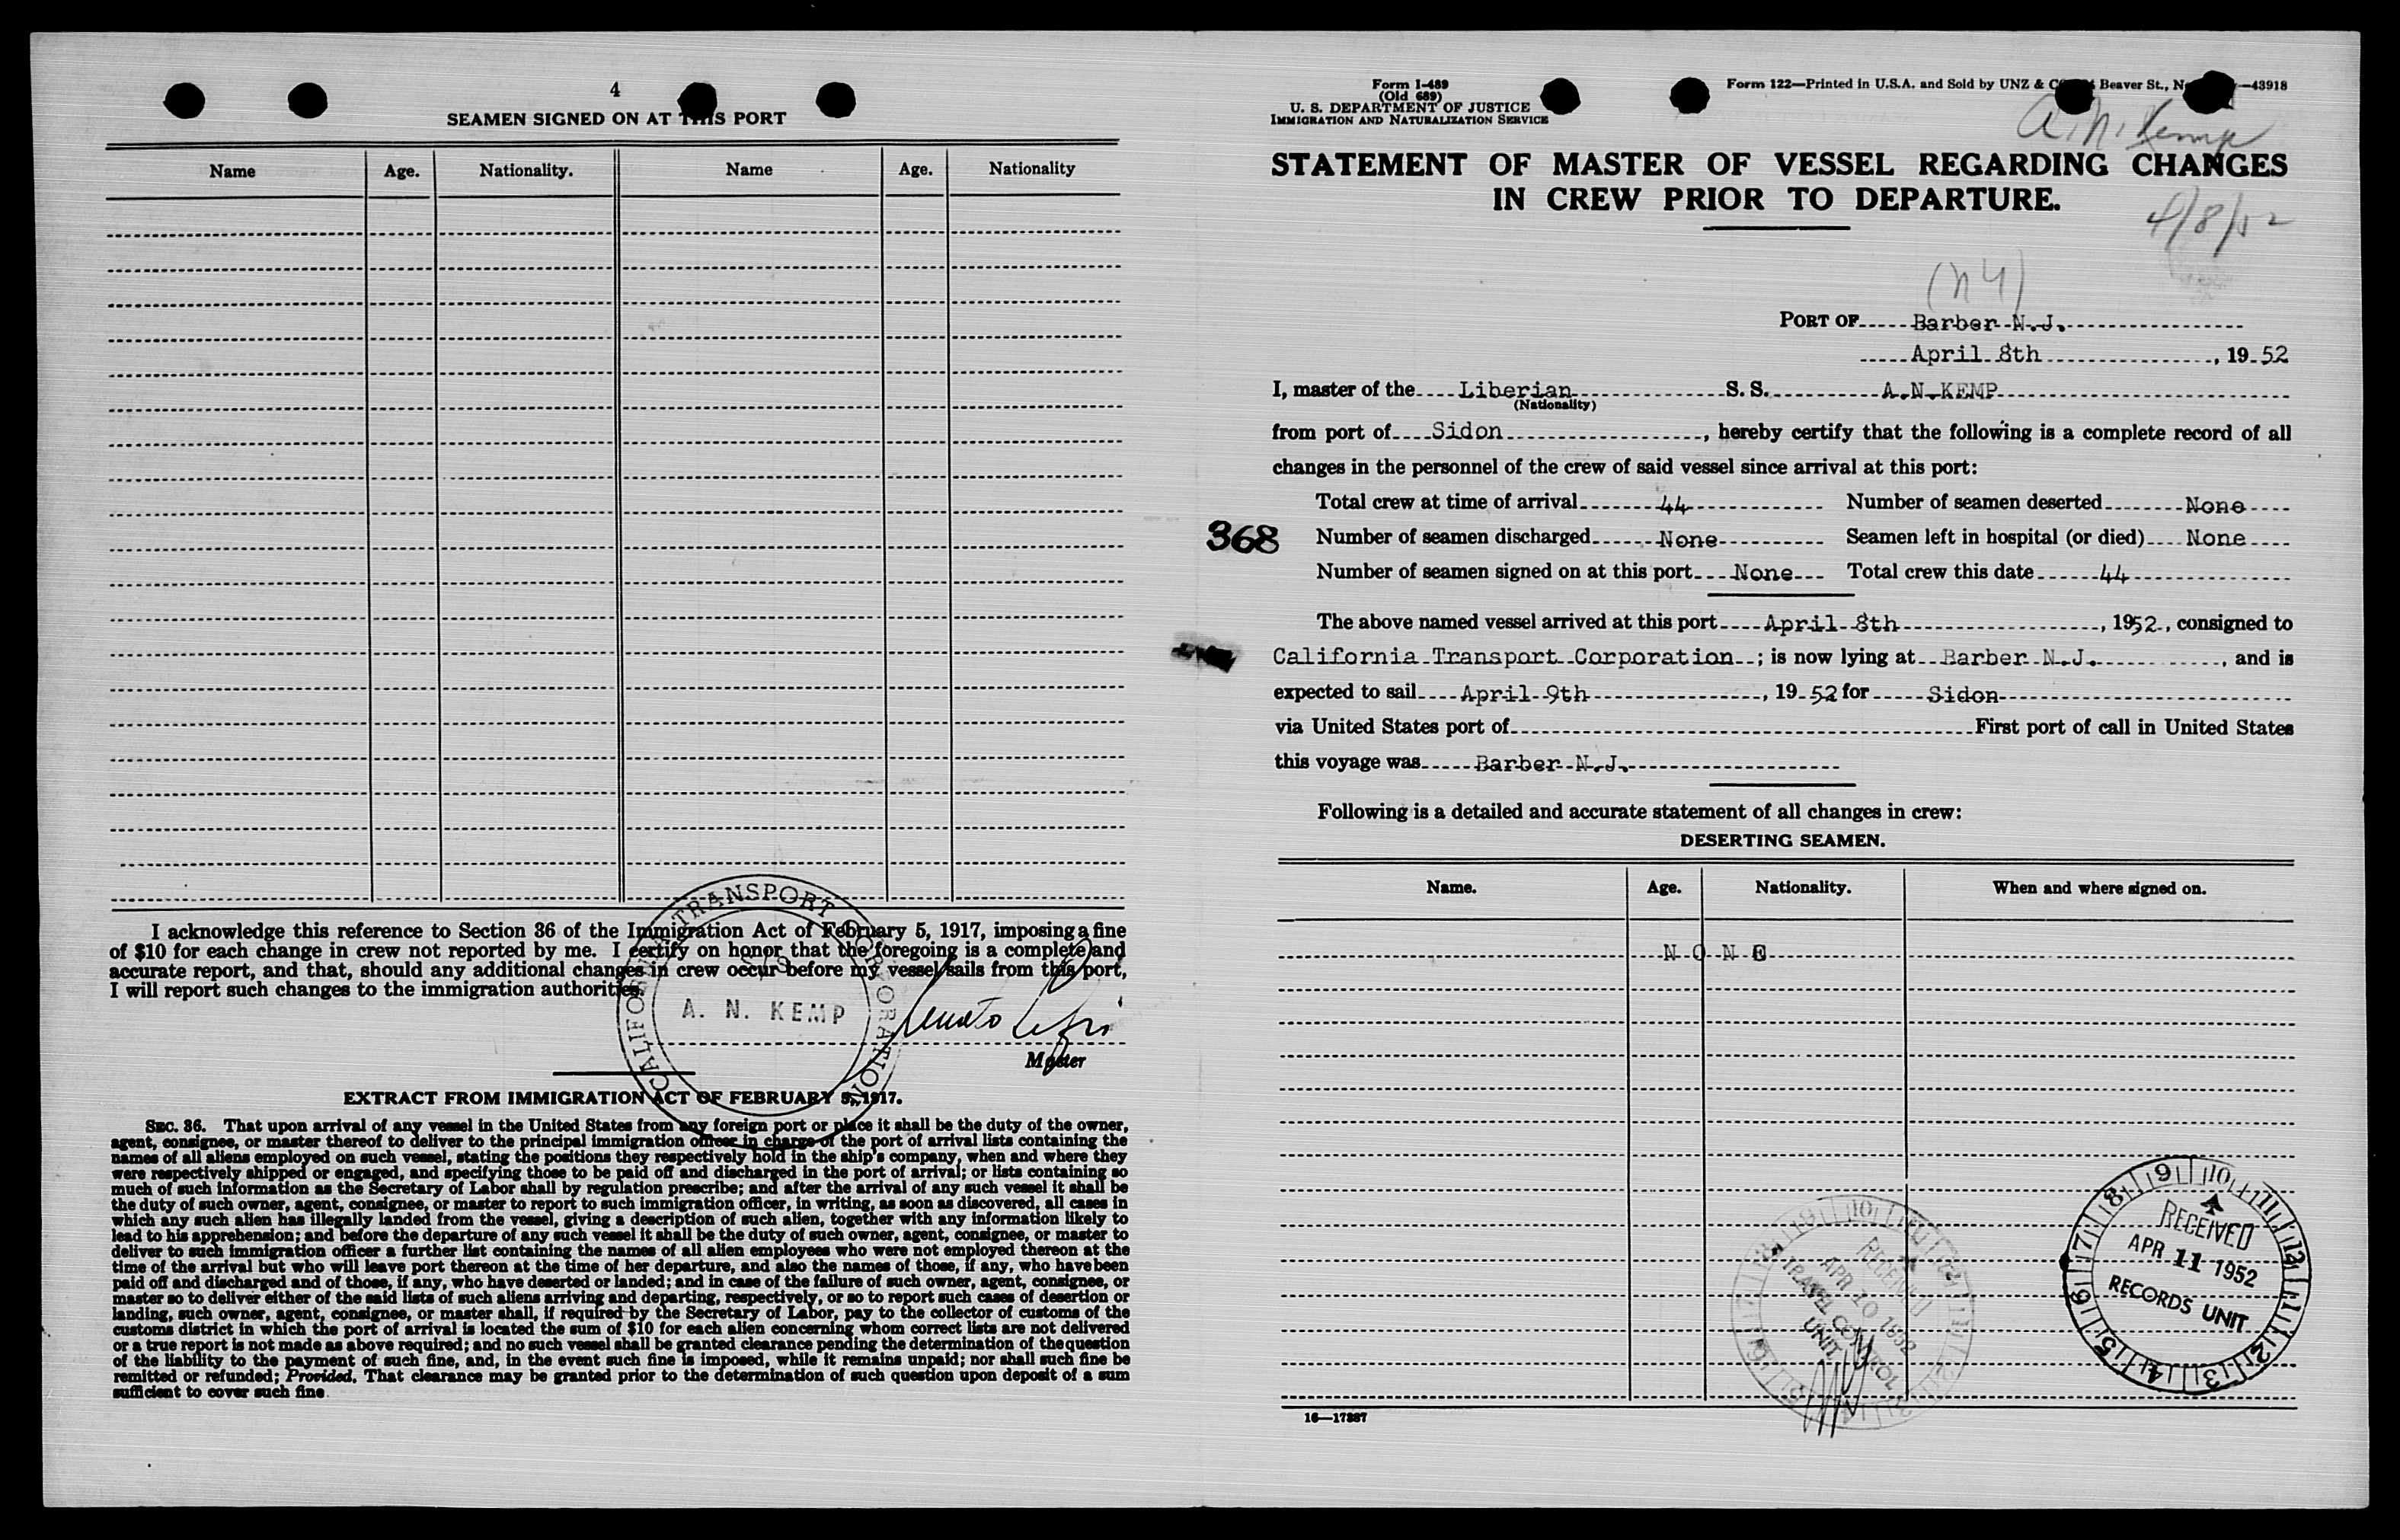 4
SEAMEN SIGNED ON AT THIS PORT
Name Age. Nationality. Name Age. Nationality
I acknowledge this reference to Section 36 of the Immigration Act of February 5, 1917, imposing a fine
of $10 for each change in crew not reported by me. I certify on honor that the foregoing is a complete and
accurate report, and that, should any additional changes in crew occur before my vessel sails from this port,
I will report such changes to the immigration authorities.
CALIFORNIA TRANSPORT CORPORATION
S/S
A. N. KEMP
Renato
Master
EXTRACT FROM IMMIGRATION ACT OF FEBRUARY 5, 1917.
SEC. 36. That upon arrival of any vessel in the United States from any foreign port or place it shall be the duty of the owner,
agent, consignee, or master thereof to deliver to the principal immigration officer in charge of the port of arrival lists containing the
names of all aliens employed on such vessel, stating the positions they respectively hold in the ship's company, when and where they
were respectively shipped or engaged, and specifying those to be paid off and discharged in the port of arrival; or lists containing so
much of such information as the Secretary of Labor shall by regulation prescribe; and after the arrival of any such vessel it shall be
the duty of such owner, agent, consignee, or master to report to such immigration officer, in writing, as soon as discovered, all cases in
which any such alien has illegally landed from the vessel, giving a description of such alien, together with any information likely to
lead to his apprehension; and before the departure of any such vessel it shall be the duty of such owner, agent, consignee, or master to
deliver to such immigration officer a further list containing the names of all alien employees who were not employed thereon at the
time of the arrival but who will leave port thereon at the time of her departure, and also the names of those, if any, who have been
paid off and discharged and of those, if any, who have deserted or landed; and in case of the failure of such owner, agent, consignee, or
master so to deliver either of the said lists of such aliens arriving and departing, respectively, or so to report such cases of desertion or
landing, such owner, agent, consignee, or master shall, if required by the Secretary of Labor, pay to the collector of customs of the
customs district in which the port of arrival is located the sum of $10 for each alien concerning whom correct lists are not delivered
or a true report is not made as above required; and no such vessel shall be granted clearance pending the determination of the question
of the liability to the payment of such fine, and, in the event such fine is imposed, while it remains unpaid; nor shall such fine be
remitted or refunded; Provided, That clearance may be granted prior to the determination of such question upon deposit of a sum
sufficient to cover such fine.
Form I-489
(Old 689)
U. S. DEPARTMENT OF JUSTICE
IMMIGRATION AND NATURALIZATION SERVICE
Form 122—Printed in U.S.A. and Sold by UNZ & Beaver St., —43918
A. N. Kemp
STATEMENT OF MASTER OF VESSEL REGARDING CHANGES
IN CREW PRIOR TO DEPARTURE.
4/8/52
(NY)
PORT OF Barber N.J.
April 8th, 19 52
I, master of the Liberian S. S. A.N.KEMP
(Nationality)
from port of Sidon, hereby certify that the following is a complete record of all
changes in the personnel of the crew of said vessel since arrival at this port:
Total crew at time of arrival 44 Number of seamen deserted None
368 Number of seamen discharged None Seamen left in hospital (or died) None
Number of seamen signed on at this port None Total crew this date 44
The above named vessel arrived at this port April 8th, 1952, consigned to
California Transport Corporation; is now lying at Barber N.J., and is
expected to sail April 9th, 19 52 for Sidon
via United States port of First port of call in United States
this voyage was Barber N.J.
Following is a detailed and accurate statement of all changes in crew:
DESERTING SEAMEN.
Name. Age. Nationality. When and where signed on.
N O N E
RECEIVED
APR 10 1952
TRAVEL CONTROL
UNIT
9 10 11 12 1 2 3 4 5 6 7 8
RECEIVED
APR 11 1952
RECORDS UNIT
16—17887